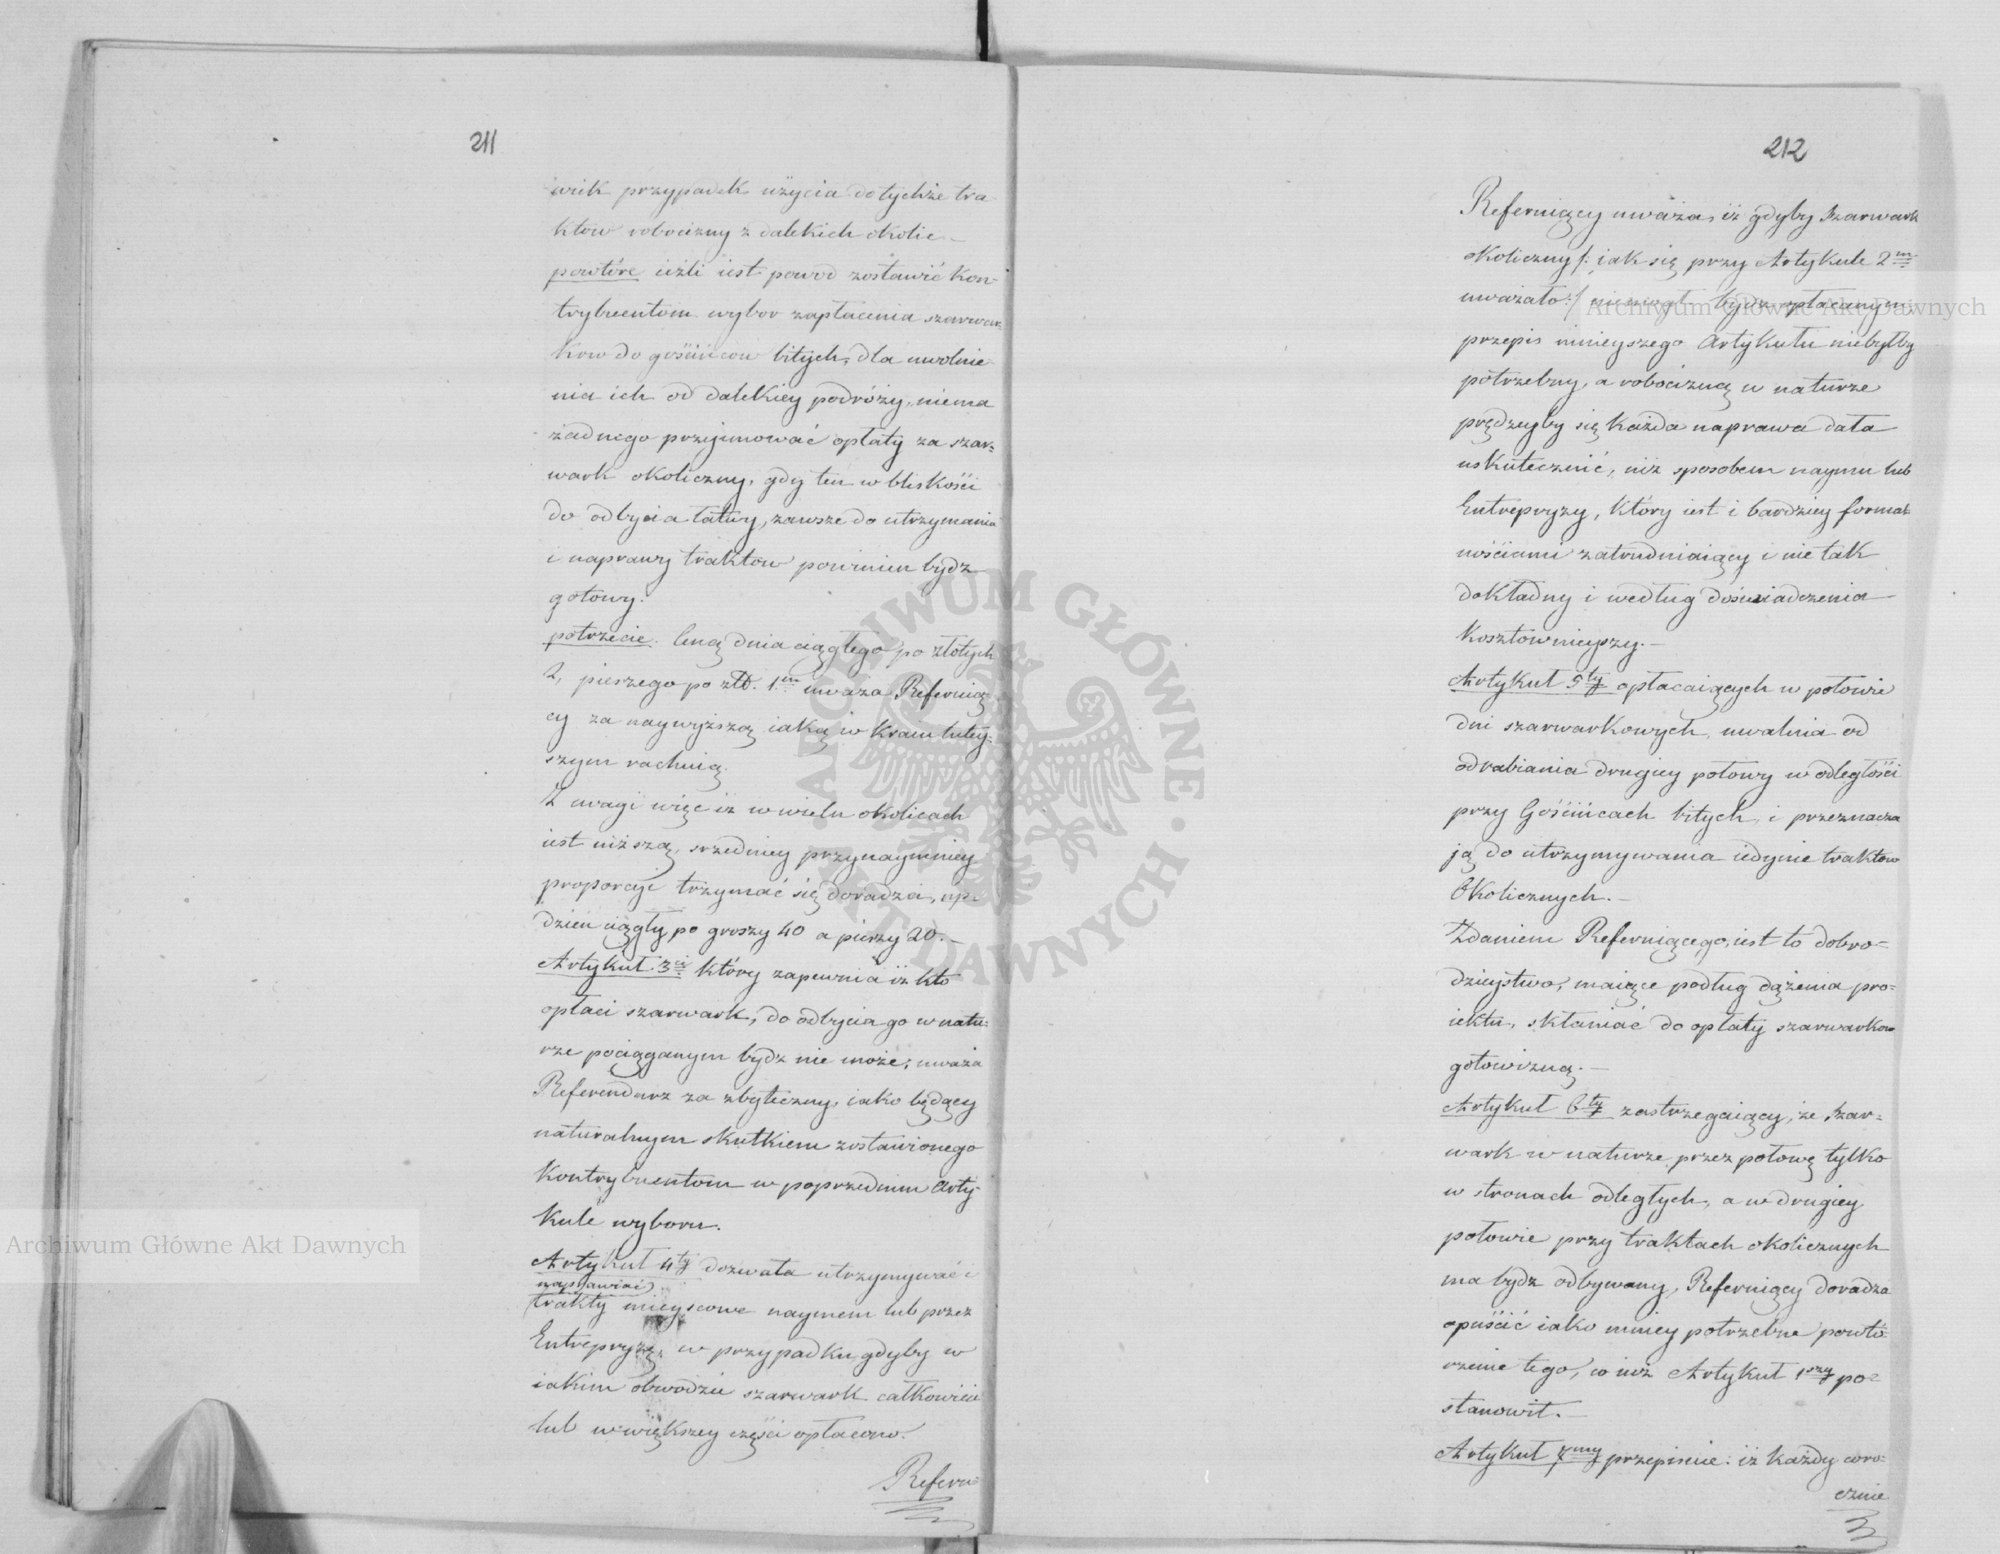 211
wiek przypadek użycia do tychże tra
ktow robocizny z dalekich okolic –
powtóre ieżli iest powod zostawić kon
trybuentom wybor zapłacenia szarwar
kow do gościńcow bitych, dla uwolnie
nia ich od dalekiey podróży, niema
żadnego przyimować opłaty za szar=
wark okoliczny, gdy ten w bliskości
do odbycia łatwy, zawsze do utrzymania
i naprawy traktow powinien bydz
gotowy.
potrzecie. Cenę dnia ciągłego po złotych
2, pieszego po złt. 1m uważa Referuią
cy za naywyższą iaką w kraiu tutey=
szym rachuią.
Z uwagi więc iż w wielu okolicach
iest niższą, srzedniey przynaymniey
proporcyi trzymać się doradza, np.
dzien ciągły po groszy 40 a pieszy 20. –
Artykuł 3ci który zapewnia iż kto
opłaci szarwark, do odbycia go w natu=
rze pociąganym bydz nie może, uważa
Referendarz za zbyteczny, iako będący
naturalnym skutkiem zostawionego
Kontrybuentom w poprzednim Arty=
kule wyboru.
Artykuł 4ty dozwala utrzymywać i
naprawiać
trakty mieyscowe naymem lub przez
Entrepryzę, w przypadku gdyby w
iakim obwodzie szarwark całkowicie
lub w większey części opłacono.
Referu=
212
Referuiący uważa, iż gdyby Szarwark
okoliczny /: iak się przy Artykule 2m
uważało :/ niemógł bydz opłacanym,
przepis ninieyszego Artykułu niebyłby
potrzebny, a robocizną w naturze
prędzeyby się każda naprawa dała
uskutecznić, niż sposobem naymu lub
Entrepryzy, który iest i bardziey formal=
nościami zatrudniaiący i nie tak
dokładny i według doświadczenia
kosztownieyszy. –
Artykuł 5ty opłacaiących w połowie
dni szarwarkowych, uwalnia od
odrabiania drugiey połowy w odległości
przy Gościńcach bitych, i przeznacza
ją do utrzymywania iedynie traktow
Okolicznych. –
Zdaniem Referuiącego, iest to dobro=
dzieystwo, maiące podług dążenia pro=
iektu, skłaniać do opłaty szarwarkow
gotowizną. –
Artykuł 6ty zastrzegaiący, że Szar=
wark w naturze przez połowę tylko
w stronach odległych, a w drugiey
połowie przy traktach okolicznych
ma bydz odbywany, Referuiący doradza
opuścić iako mniey potrzebne powto
rzenie tego, co iuż Artykuł 1szy po=
stanowił. –
Artykuł 7my przepisuie: iż każdy coro=
cznie
Archiwum Główne Akt Dawnych
Archiwum Główne Akt Dawnych
ARCHIWUM GŁÓWNE · AKT DAWNYCH ·